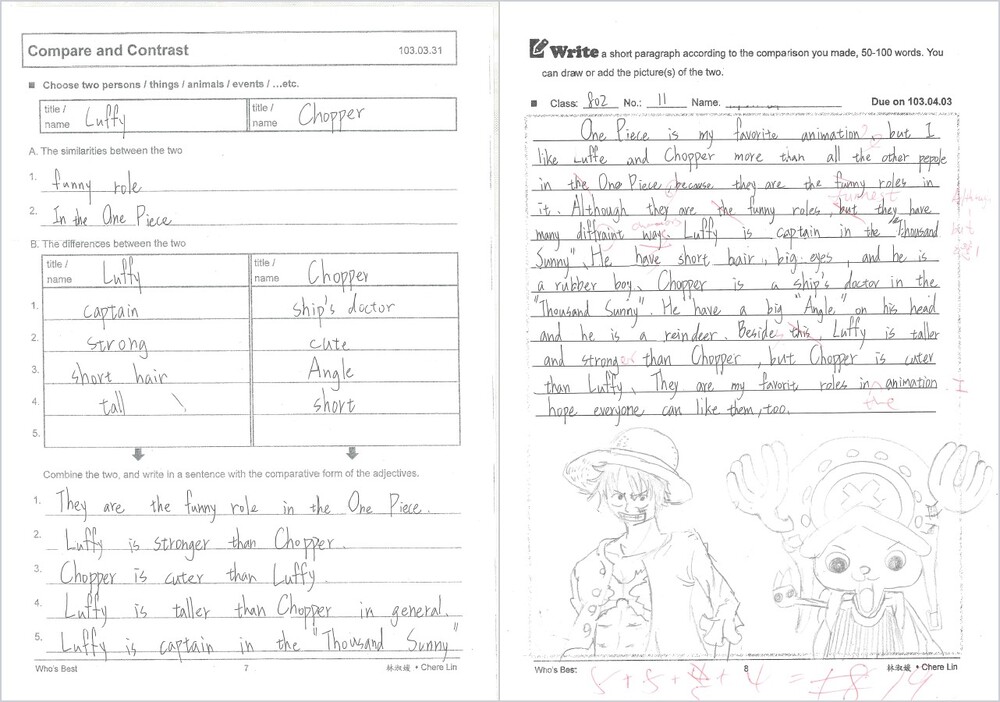 Compare and Contrast 103.03.31
■ Choose two persons / things / animals / events / ...etc.
title / name Luffy title / name Chopper
A. The similarities between the two
1. funny role
2. In the One Piece
B. The differences between the two
title / name Luffy title / name Chopper
1. captain ship's doctor
2. strong cute
3. short hair Angle
4. tall short
5.
Combine the two, and write in a sentence with the comparative form of the adjectives.
1. They are the funny role in the One Piece.
2. Luffy is stronger than Chopper.
3. Chopper is cuter than Luffy.
4. Luffy is taller than Chopper in general.
5. Luffy is captain in the "Thousand Sunny"
Who's Best 7 林淑媛 • Chere Lin
Write a short paragraph according to the comparison you made, 50-100 words. You
can draw or add the picture(s) of the two.
■ Class: 802 No.: 11 Name. Due on 103.04.03
One Piece is my favorite animation, but I
like Luffe and Chopper more than all the other pepole
in the One Piece because they are the funny roles in
funniest
it. Although they are the funny roles, but they have
many diffraint way. Luffy is captain in the "Thousand
Sunny". He have short hair, big eyes, and he is
a rubber boy. Chopper is a ship's doctor in the
"Thousand Sunny". He have a big "Angle" on his head
and he is a reindeer. Beside this, Luffy is taller
and stronger than Chopper, but Chopper is cuter
than Luffy. They are my favorit roles in animation. I
the
hope everyone can like them, too.
Who's Best 8 林淑媛 • Chere Lin